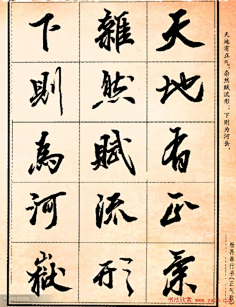 天地有正氣
雜然賦流形
下則為河嶽
天地有正气，杂然赋流形：下则为河岳，